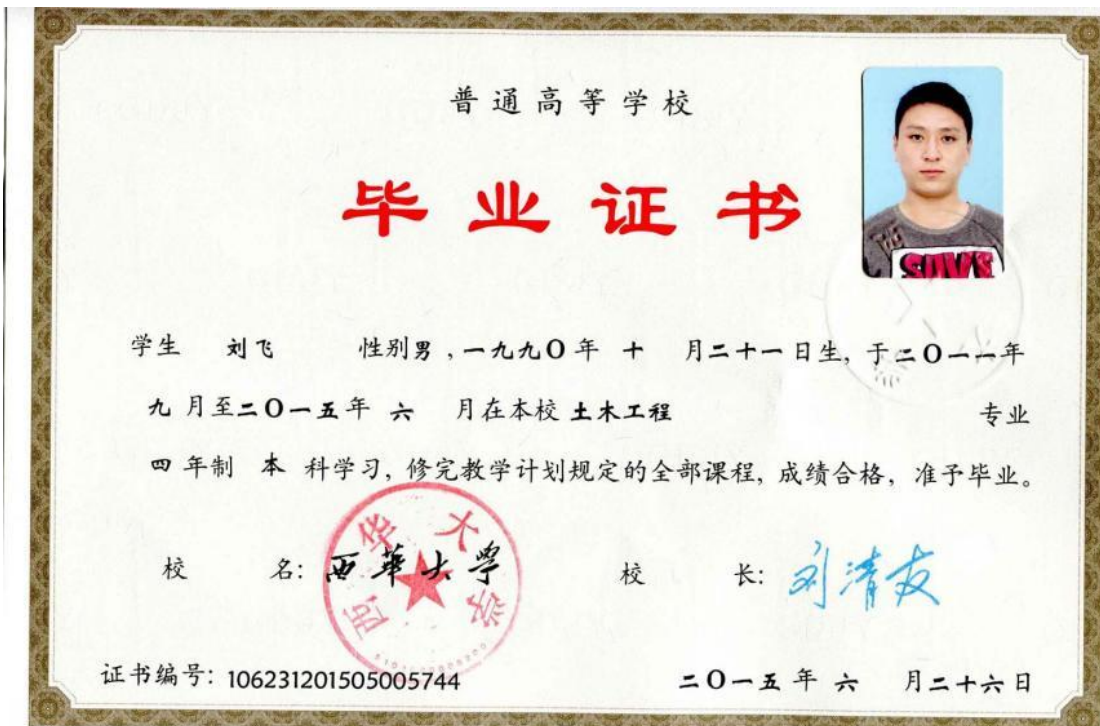 普通高等学校
毕业证书
学生 刘飞 性别男,一九九〇年 十 月二十一日生,于二〇一一年
九月至二〇一五年 六 月在本校 土木工程 专业
四年制 本 科学习,修完教学计划规定的全部课程,成绩合格,准予毕业。
校 名:西華大學 校 长:刘清友
西华大学
证书编号:106231201505005744 二〇一五年 六 月二十六日